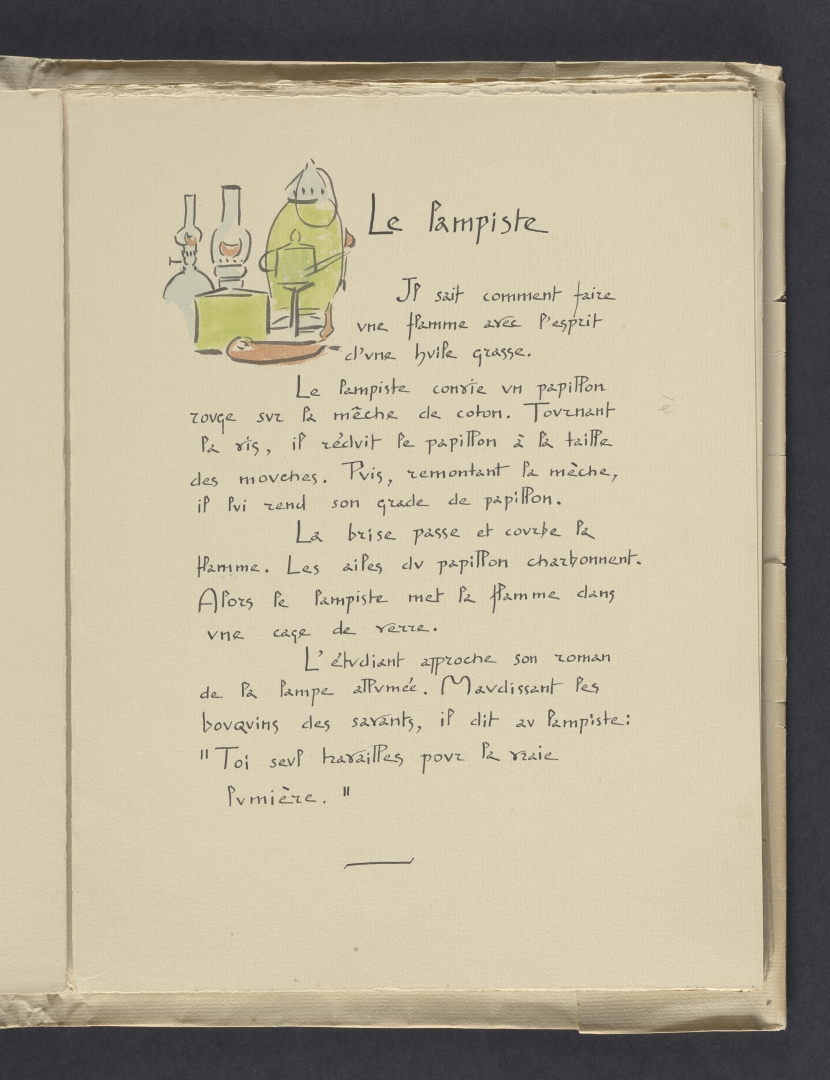 Le lampiste
Il sait comment faire
une flamme avec l'esprit
d'une huile grasse.
Le lampiste convie un papillon
rouge sur la mêche de coton. Tournant
la vis, il réduit le papillon à la taille
des mouches. Puis, remontant la mèche,
il lui rend son grade de papillon.
La brise passe et courbe la
flamme. Les ailes du papillon charbonnent.
Alors le lampiste met la flamme dans
une cage de verre.
L'étudiant approche son roman
de la lampe allumée. Maudissant les
bouquins des savants, il dit au lampiste:
"Toi seul travailles pour la vraie
lumière."